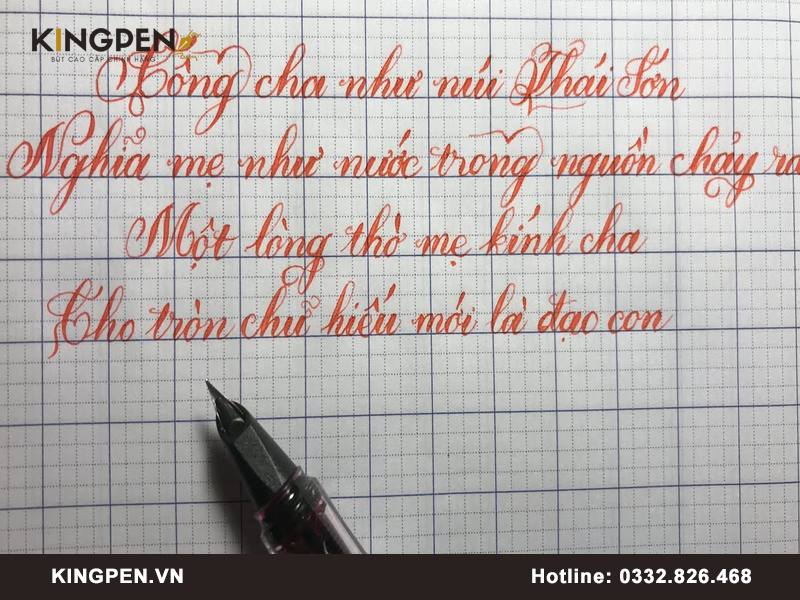 KINGPEN
BÚT CAO CẤP CHÍNH HÃNG
Công cha như núi Thái Sơn
Nghĩa mẹ như nước trong nguồn chảy ra
Một lòng thờ mẹ kính cha
Cho tròn chữ hiếu mới là đạo con
KINGPEN.VN
Hotline: 0332.826.468